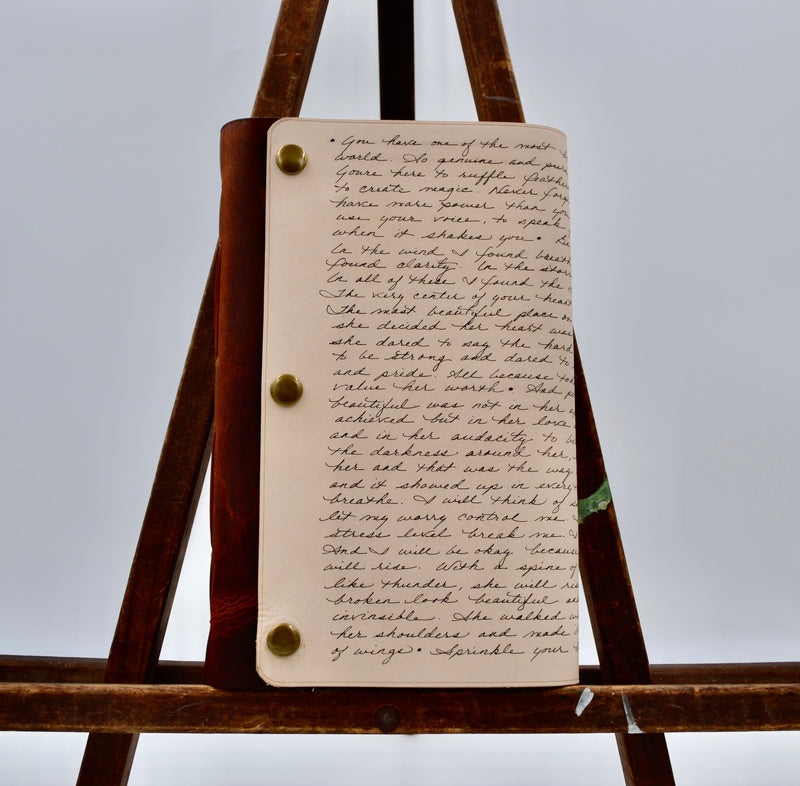 • You have one of the most
world. So genuine and pure
Youre here to ruffle feathe
to create magic. Never forg
have more power than you
use your voice, to speak
when it shakes you •
In the wind I found breath
found clarity. In the stor
In all of these I found the
The very center of your heart
The most beautiful place on
she decided her heart was
she dared to say the hard
to be strong and dared to
and pride. All because
value her worth • And
beautiful was not in her
achieved but in her love
and in her audacity to
the darkness around her,
her and that was the way
and it showed up in every
breathe. I will think of
let my worry control me.
stress level break me. I
And I will be okay because
will rise. With a spine of
like thunder, she will ris
broken look beautiful a
invinsible. She walked w
her shoulders and made
of wings • Sprinkle your